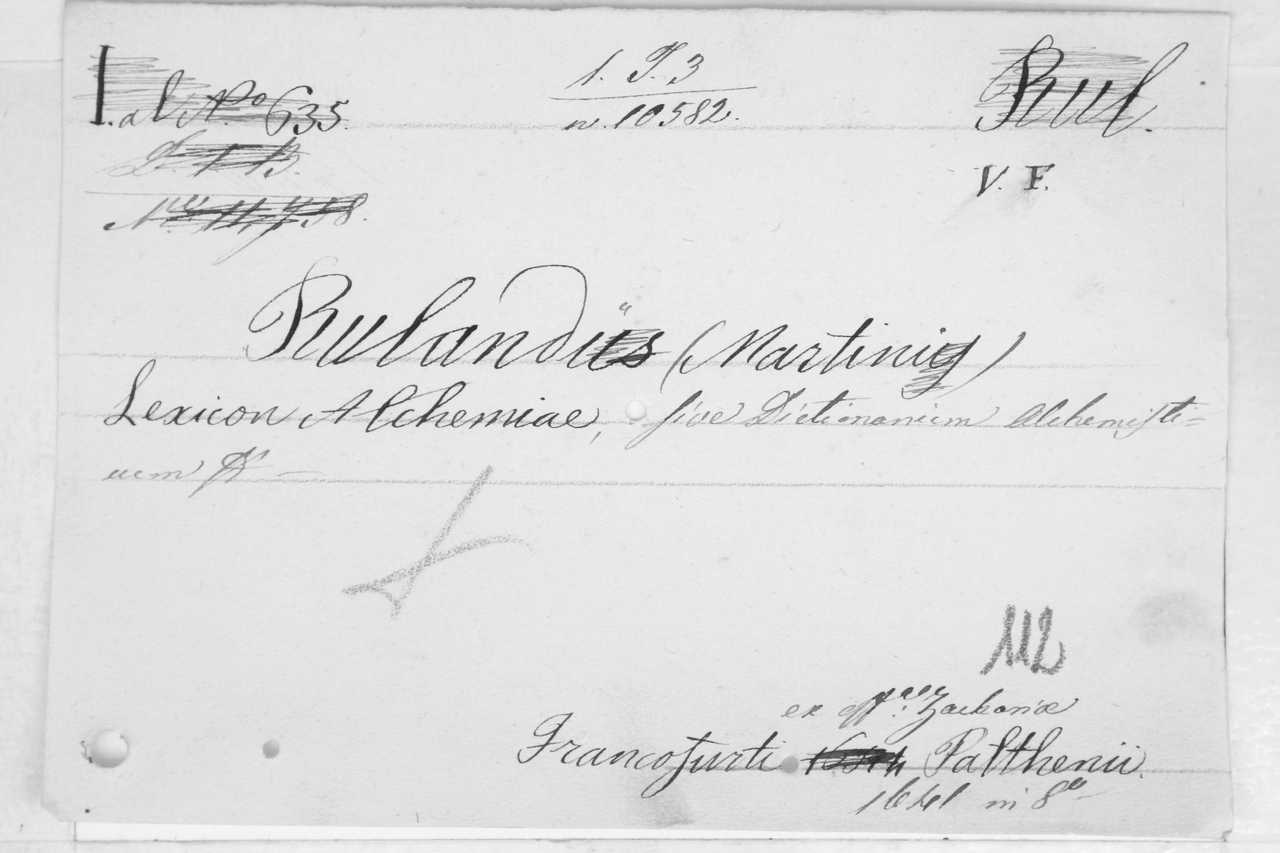 I. al N.o 635.
1. T. 3
n. 10582.
Rul.
V. F.
Rulandüs (Martiniy)
Lexicon Alchemiae, sive Dictionarium alchemisti=
cum &
112
ex offna: Zachariæ
Francofurti Palthenii.
1641 in 8o